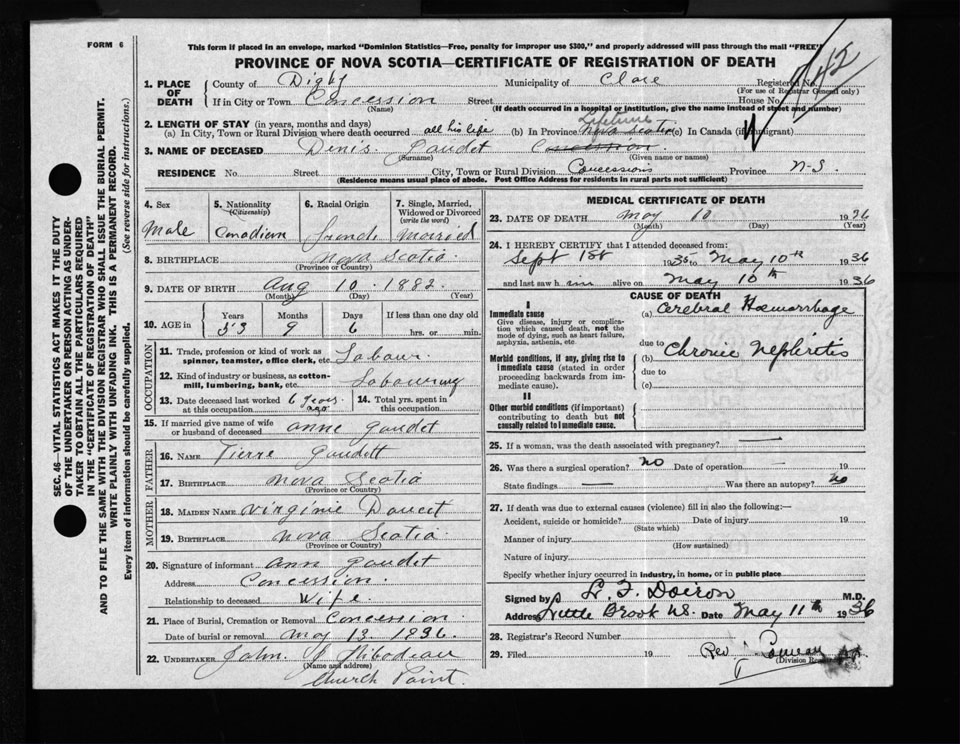 FORM 6
This form if placed in an envelope, marked "Dominion Statistics—Free, penalty for improper use $300," and properly addressed will pass through the mail "FREE"
PROVINCE OF NOVA SCOTIA—CERTIFICATE OF REGISTRATION OF DEATH
1. PLACE OF DEATH County of Digby Municipality of Clare Registered No.
(For use of Registrar General only)
If in City or Town Concession Street House No.
(Name) (If death occurred in a hospital or institution, give the name instead of street and number)
2. LENGTH OF STAY (in years, months and days)
Lifetime
(a) In City, Town or Rural Division where death occurred all his life (b) In Province Nova Scotia (c) In Canada (if immigrant)
3. NAME OF DECEASED Denis. Gaudet Concession.
(Surname) (Given name or names)
RESIDENCE No. Street City, Town or Rural Division Concessions Province N-S.
(Residence means usual place of abode. Post Office Address for residents in rural parts not sufficient)
SEC. 46—VITAL STATISTICS ACT MAKES IT THE DUTY
OF THE UNDERTAKER OR PERSON ACTING AS UNDER-
TAKER TO OBTAIN ALL THE PARTICULARS REQUIRED
IN THE "CERTIFICATE OF REGISTRATION OF DEATH"
AND TO FILE THE SAME WITH THE DIVISION REGISTRAR WHO SHALL ISSUE THE BURIAL PERMIT.
WRITE PLAINLY WITH UNFADING INK. THIS IS A PERMANENT RECORD.
Every item of information should be carefully supplied. (See reverse side for instructions.)
4. Sex
Male
5. Nationality
(Citizenship)
Canadian
6. Racial Origin
french
7. Single, Married, Widowed or Divorced
(write the word)
Married
8. BIRTHPLACE Nova Scotia.
(Province or Country)
9. DATE OF BIRTH Aug 10. 1882.
(Month) (Day) (Year)
10. AGE in Years Months Days If less than one day old
53 9 6 hrs. or min.
OCCUPATION
11. Trade, profession or kind of work as spinner, teamster, office clerk, etc. Labour.
12. Kind of industry or business, as cotton-mill, lumbering, bank, etc. Labouring
13. Date deceased last worked at this occupation 6 years ago
14. Total yrs. spent in this occupation
15. If married give name of wife or husband of deceased anne gaudet
FATHER
16. NAME Pierre Gaudett
17. BIRTHPLACE Nova Scotia
(Province or Country)
MOTHER
18. MAIDEN NAME Virginie Doucet
19. BIRTHPLACE Nova Scotia.
(Province or Country)
20. Signature of informant ann gaudet
Address Concession.
Relationship to deceased Wife.
21. Place of Burial, Cremation or Removal Concession.
Date of burial or removal May 13. 1836.
22. UNDERTAKER John. J Thibodeau
(Name and address)
Church Point.
MEDICAL CERTIFICATE OF DEATH
23. DATE OF DEATH May 10 1936
(Month) (Day) (Year)
24. I HEREBY CERTIFY that I attended deceased from:
Sept 1st 1935 to May 10th 1936
and last saw him alive on May 10th 1936
CAUSE OF DEATH
I
Immediate cause
Give disease, injury or complication which caused death, not the mode of dying, such as heart failure, asphyxia, asthenia, etc.
(a) Cerebral Hæmorrhage
due to
Morbid conditions, if any, giving rise to immediate cause (stated in order proceeding backwards from immediate cause).
(b) Chronic Nephritis
due to
(c)
II
Other morbid conditions (if important) contributing to death but not causally related to immediate cause.
25. If a woman, was the death associated with pregnancy? —
26. Was there a surgical operation? no Date of operation — 19
State findings — Was there an autopsy? no
27. If death was due to external causes (violence) fill in also the following:—
Accident, suicide or homicide? Date of injury 19
(State which)
Manner of injury
(How sustained)
Nature of injury
Specify whether injury occurred in industry, in home, or in public place
Signed by L. F. Doiron M.D.
Address Little Brook NS. Date May 11th 1936
28. Registrar's Record Number
29. Filed 19 Rev Comeau
(Division Registrar)